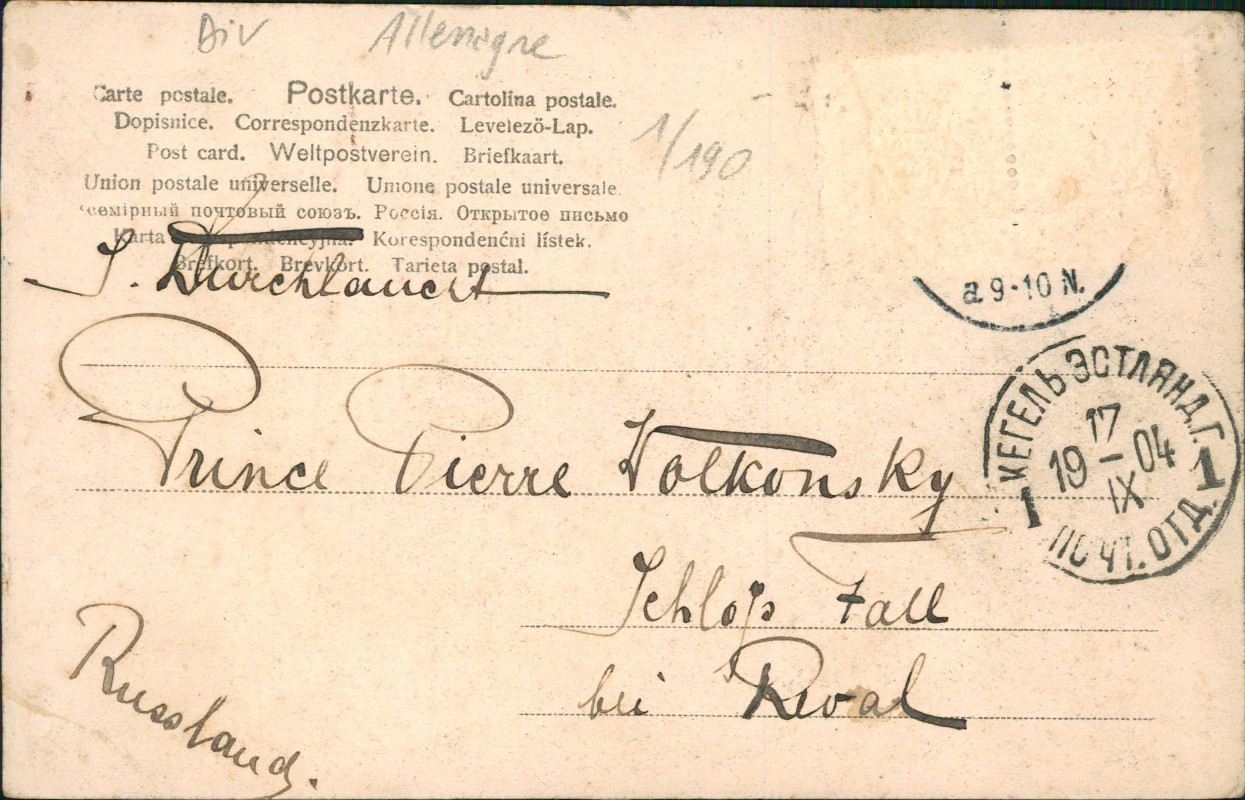 Div Allemagne
Carte postale. Postkarte. Cartolina postale.
Dopisnice. Correspondenzkarte. Levelező-Lap.
1/190
Post card. Weltpostverein. Briefkaart.
Union postale universelle. Unione postale universale.
семірный почтовый союзъ. Россія. Открытое письмо
Karta korespondencyjna. Korespondenćni lístek.
Brefkort. Brevkort. Tarieta postal.
S. Durchlaucht
a 9-10 N.
КЕГЕЛЬ ЭСТЛЯНД.Г.
17
19 – 04
IX
1 1
ПОЧТ. ОТД.
Prince Pierre Wolkonsky
Schloß Fall
bei Reval
Russland.